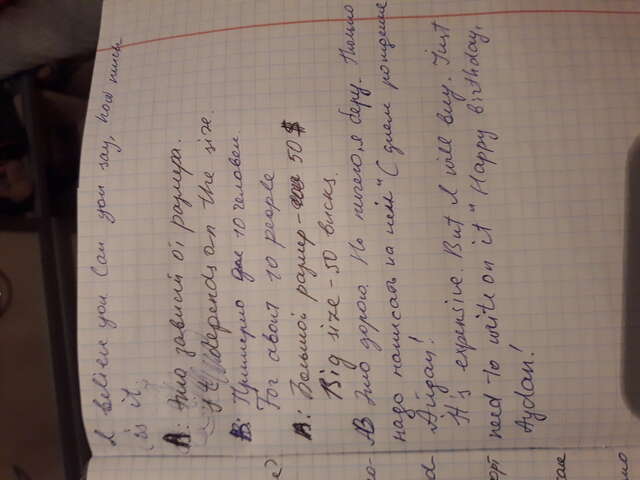 I believe you Can you say, how much
is it.
А: Это зависит от размера.
It depends on the size.
В: Примерно для 10 человек.
For about 10 people
А: Большой размер - 50 $
Big size - 50 bucks.
АВ Это дорого. Но ничего, я беру. Только
надо написать на нём "С днем рождения
Айдан!
It's expensive. But I will buy. Just
need to write on it "Happy birthday,
Aydan!